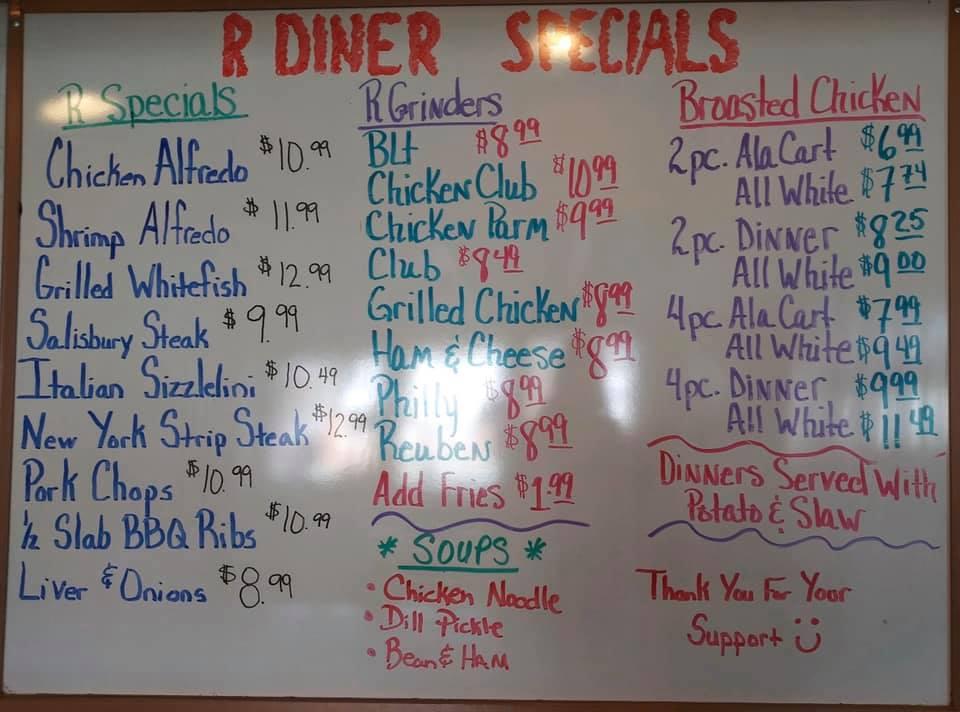 R DINER SPECIALS
R Specials
Chicken Alfredo $10.99
Shrimp Alfredo $11.99
Grilled Whitefish $12.99
Salisbury Steak $9.99
Italian Sizzlelini $10.49
New York Strip Steak $12.99
Pork Chops $10.99
1/2 Slab BBQ Ribs $10.99
Liver & Onions $8.99
R Grinders
BLt $8.99
Chicken Club $10.99
Chicken Parm $9.99
Club $8.49
Grilled Chicken $8.99
Ham & Cheese $8.99
Philly $8.99
Reuben $8.99
Add Fries $1.99
* SOUPS *
• Chicken Noodle
• Dill Pickle
• Bean & HAM
Broasted Chicken
2pc. Ala Cart $6.99
All White $7.74
2pc. Dinner $8.25
All White $9.00
4pc Ala Cart $7.99
All White $9.49
4pc. Dinner $9.99
All White $11.49
Dinners Served With
Potato & Slaw
Thank You For Your
Support